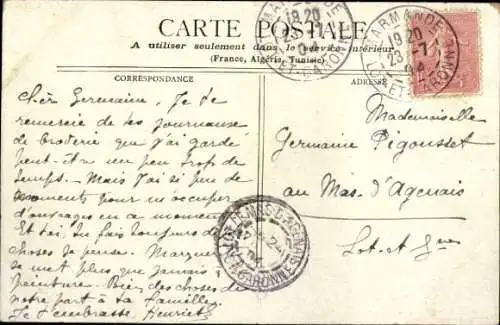 CARTE POSTALE
A utiliser seulement dans le service intérieur
(France, Algérie, Tunisie)
MARMANDE
19 20
23 -7
LOT-ET-GARONNE
MARMANDE
19 20
23 -7
LOT-ET-GARONNE
CORRESPONDANCE
ADRESSE
Chère Germaine, Je te
remercie de tes journaux
de broderie que j'ai gardé
peut-être un peu trop de
temps. Mais j'ai si peu de
moments pour m'occuper
d'ouvrages en ce moment
Et toi, tu fais toujours de
choses je pense. Marguerite
se met plus que jamais à
peinture. Bien des choses de
notre part à ta famille,
Je t'embrasse. Henriette
Mademoiselle
Germaine Pigousset
au Mas d'Agenais
Lot et Gne
LE MAS-D'AGENAIS
LOT-ET-GARONNE